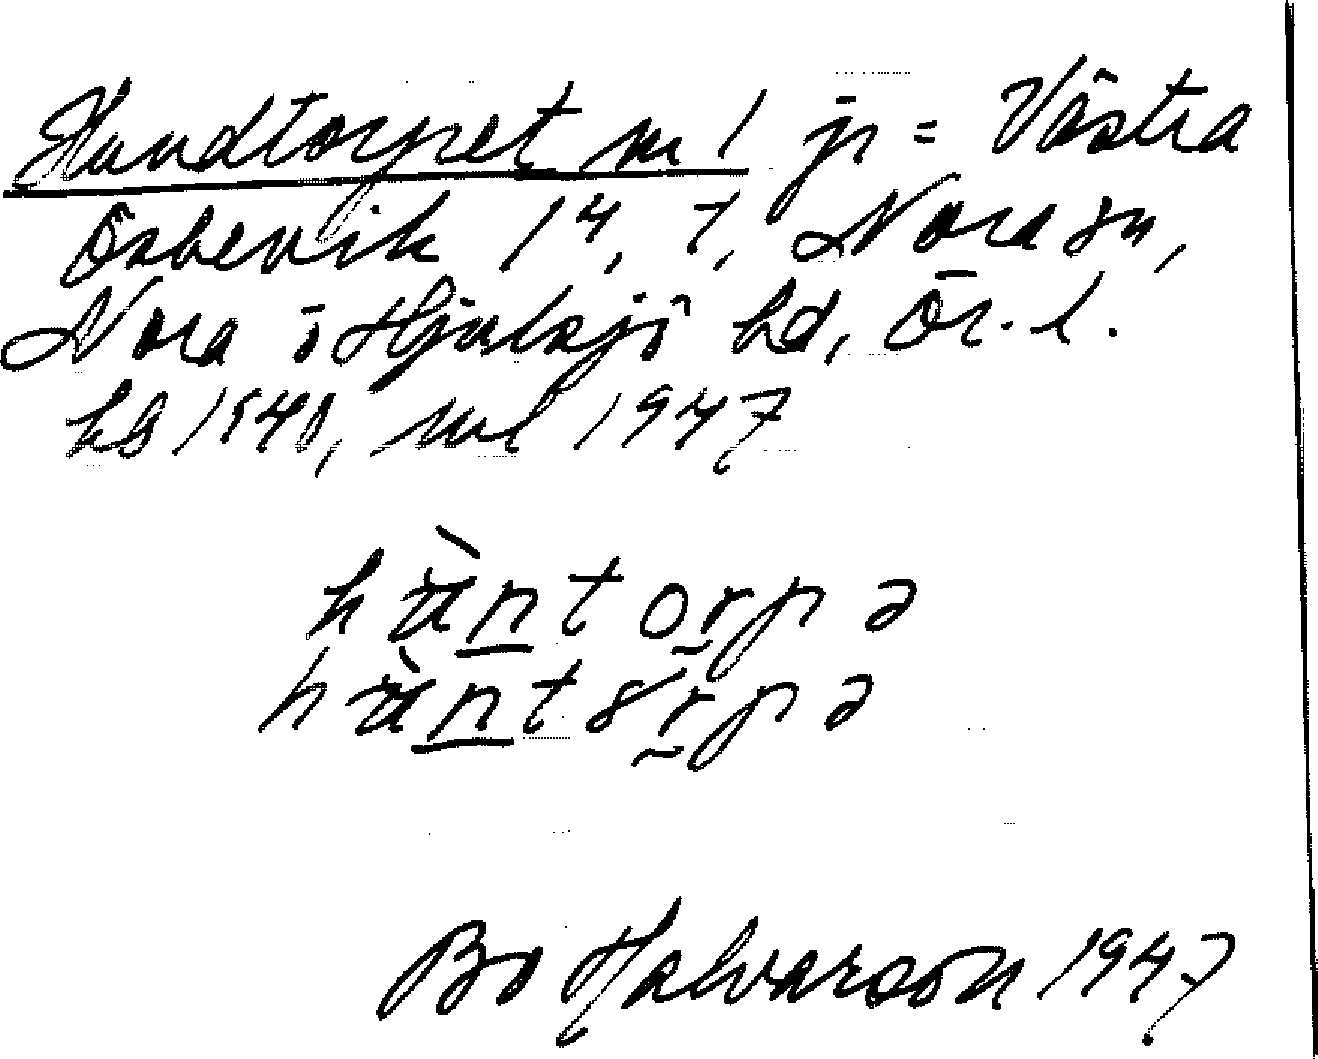 Hundtorpet nr 1 jr = Västra
Öskevik 14, 7, Nora sn,
Nora o Hjulsjö hd, Ör. l.
kb 1940, ml 1947
hùntorpə
hùntsrpə
Bo Halvarson 1947